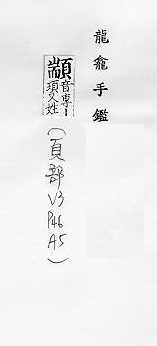 龍龕手鑑
顓音專一
項又姓
(頁部
V3
P46
A5)